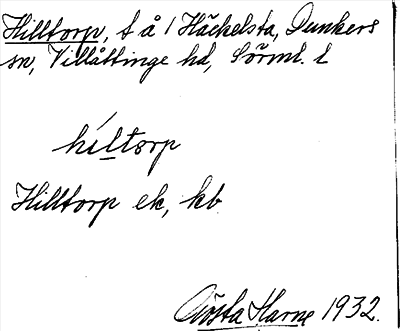 Hilltorp, t å 1 Häckelsta, Dunkers
sn, Villåttinge hd, Sörml. l
hiltorp
Hilltorp ek, kb
Gösta Harne 1932.